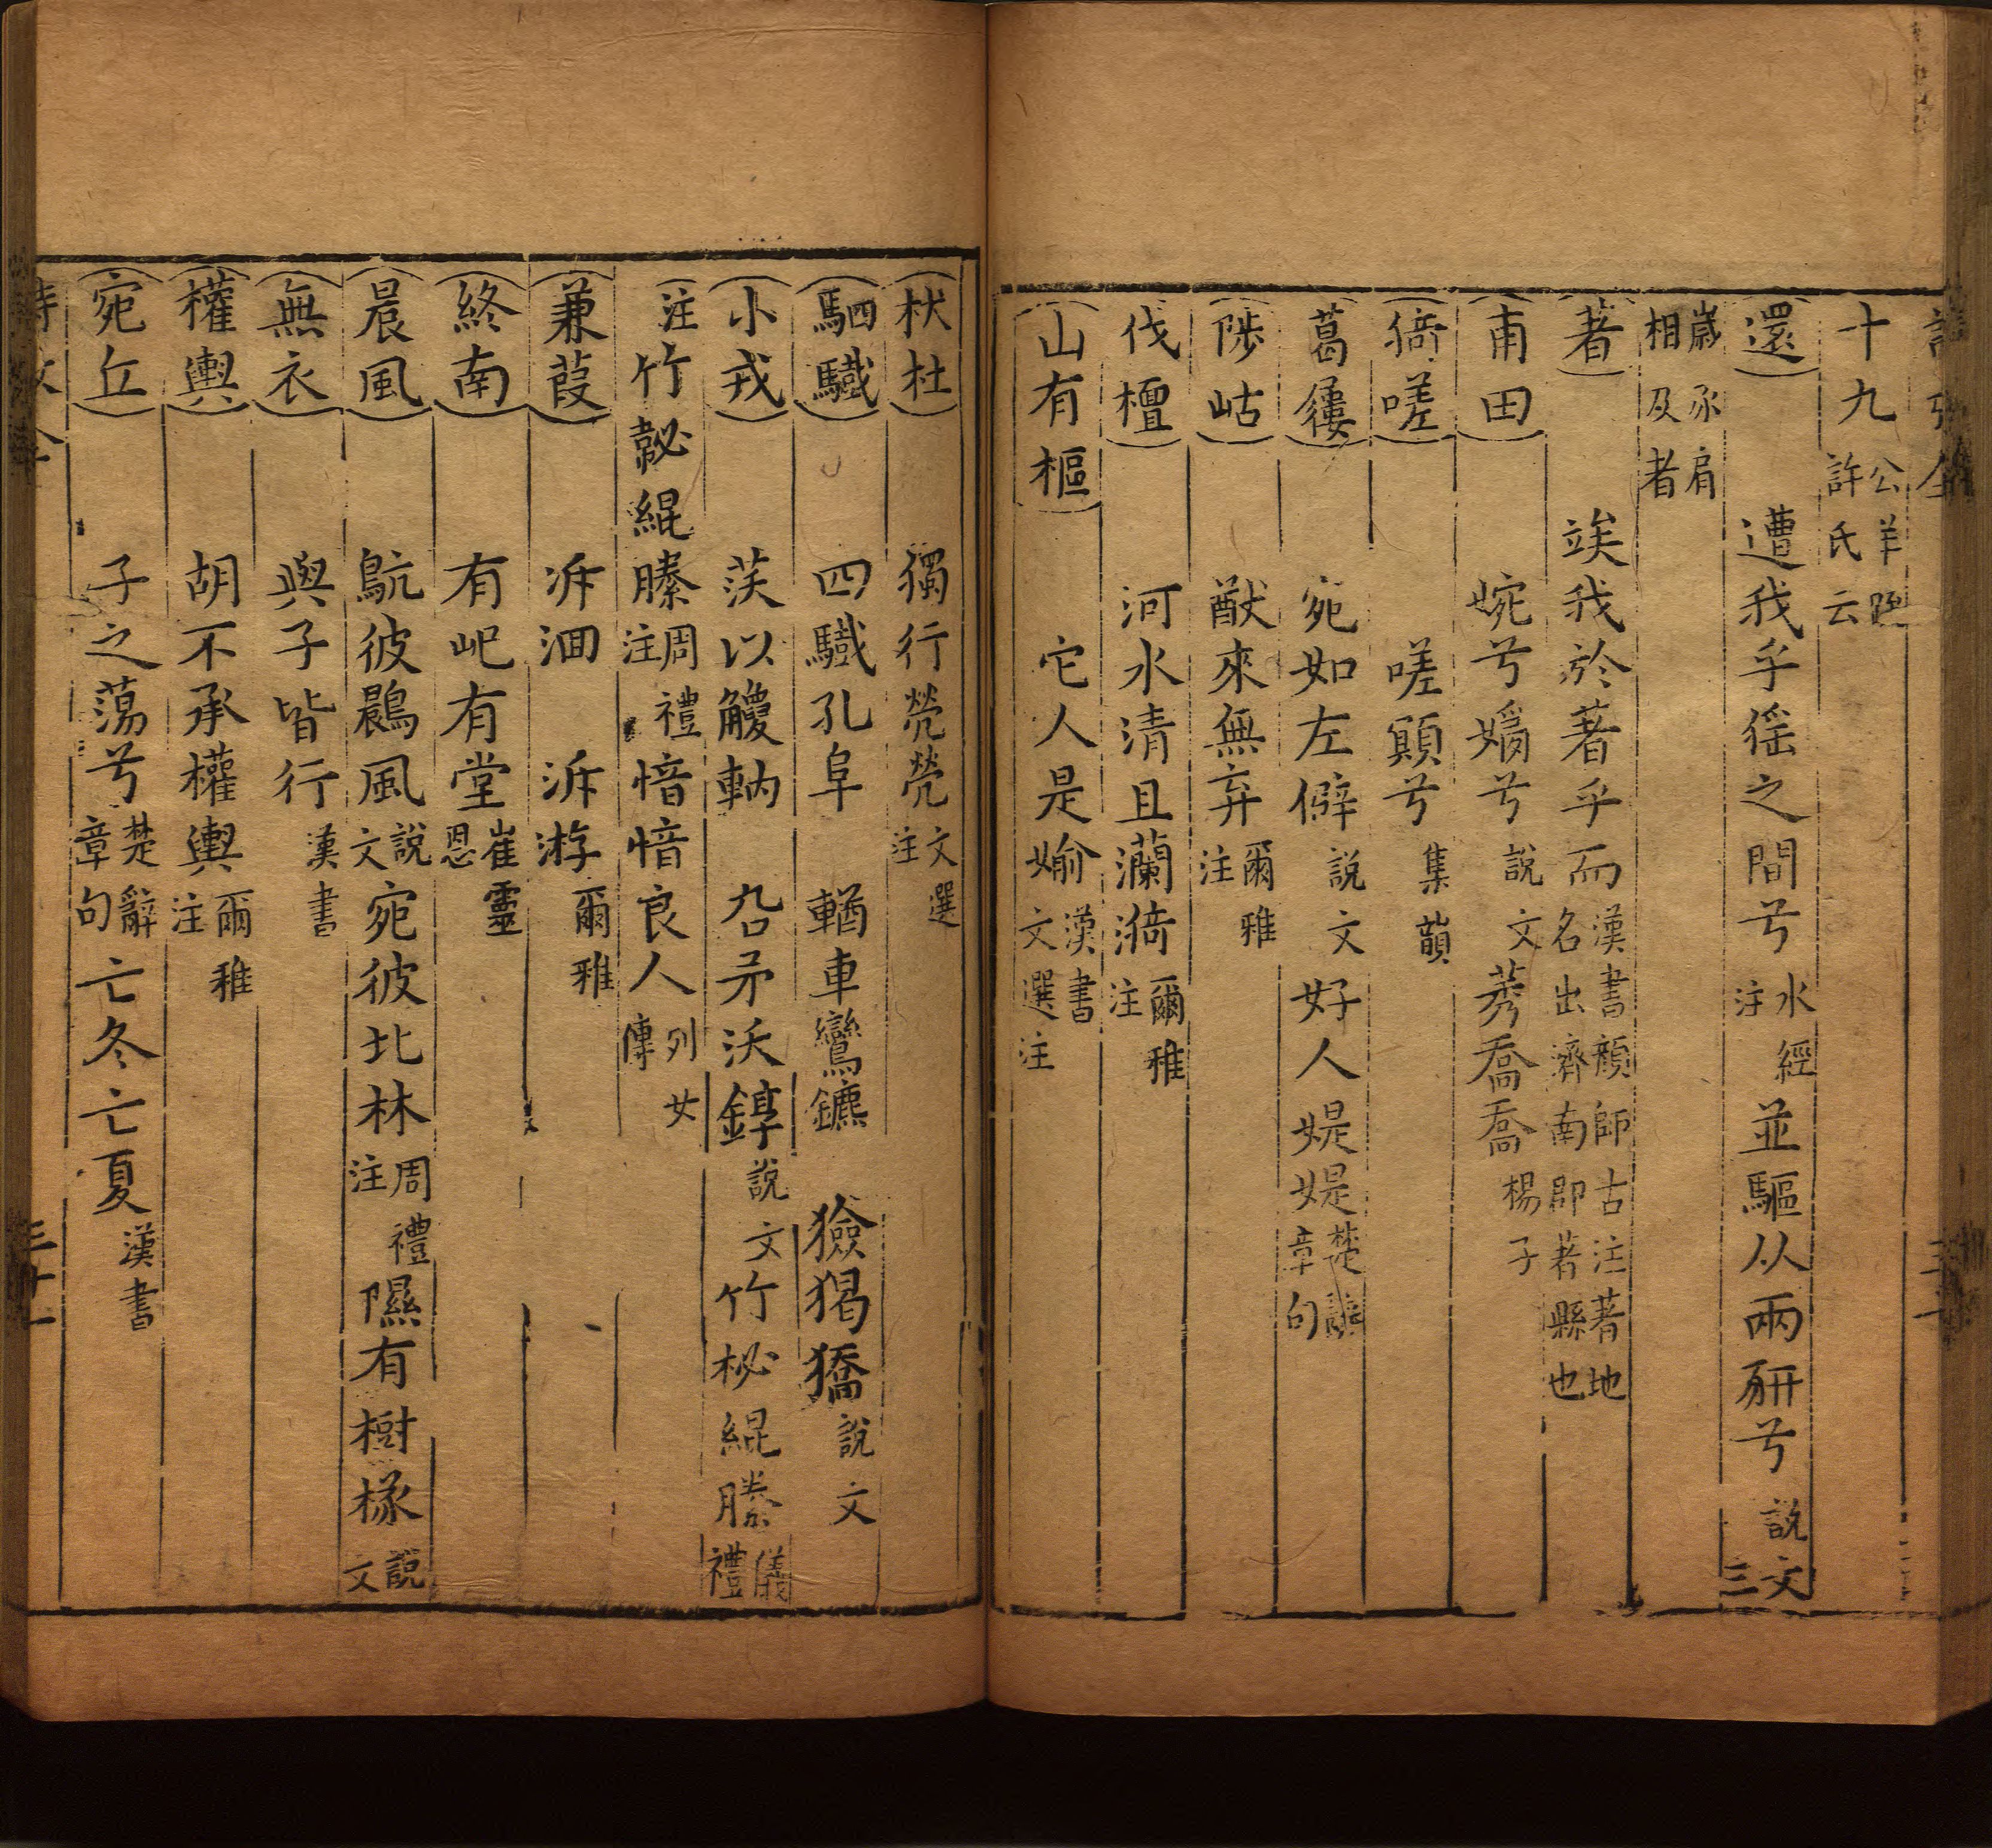 十九公羊䟽許氏云
還 遭我乎徭之間兮水經注並驅从兩豜兮說文三
歲豕肩相及者
著 竢我於著乎而漢書顏師古注著地名出濟南郡著縣也
甫田 婉兮嫡兮說文莠喬喬楊子
猗嗟 嗟顚兮集韻
葛屨 宛如左僻說文好人媞媞楚辭章句
陟岵 猷來無弃爾雅注
伐檀 河水清且瀾漪爾雅注
山有樞 它人是媮漢書文選注
杕杜 獨行煢煢文選注
駟驖 四驖孔阜 輶車鸞鑣 獫猲獢說文
小戎 茨以觼軜 厹矛沃錞說文竹柲緄縢儀禮
注竹䪐緄縢周禮注愔愔良人列女傳
蒹葭 泝洄 泝游爾雅
終南 有屺有堂崔靈恩
晨風 鴥彼鷐風說文宛彼北林周禮注隰有樹檖說文
無衣 與子皆行漢書
權輿 胡不承權輿爾雅注
宛丘 子之蕩兮楚辭章句亡冬亡夏漢書
三十一